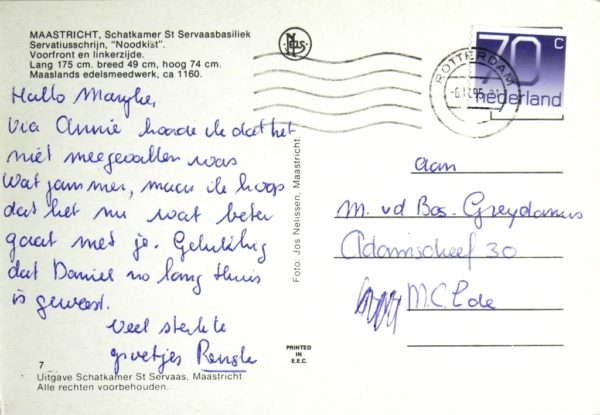 MAASTRICHT, Schatkamer St Servaasbasiliek
Servatiusschrijn, "Noodkist".
Voorfront en linkerzijde.
Lang 175 cm. breed 49 cm, hoog 74 cm.
Maaslands edelsmeedwerk, ca 1160.
Hallo
via Annie hoorde ik dat het
niet meegevallen was
Wat jammer, maar ik hoop
dat het nu wat beter
gaat met je. Gelukkig
dat Daniel zo lang thuis
is geweest.
Veel sterkte
groetjes
7
Uitgave Schatkamer St Servaas, Maastricht.
Alle rechten voorbehouden.
Foto: Jos Nelissen, Maastricht.
PRINTED
IN
E.E.C.
NELS
ROTTERDAM
70 c
nederland
aan
M. vd Bos. Greydanus
30